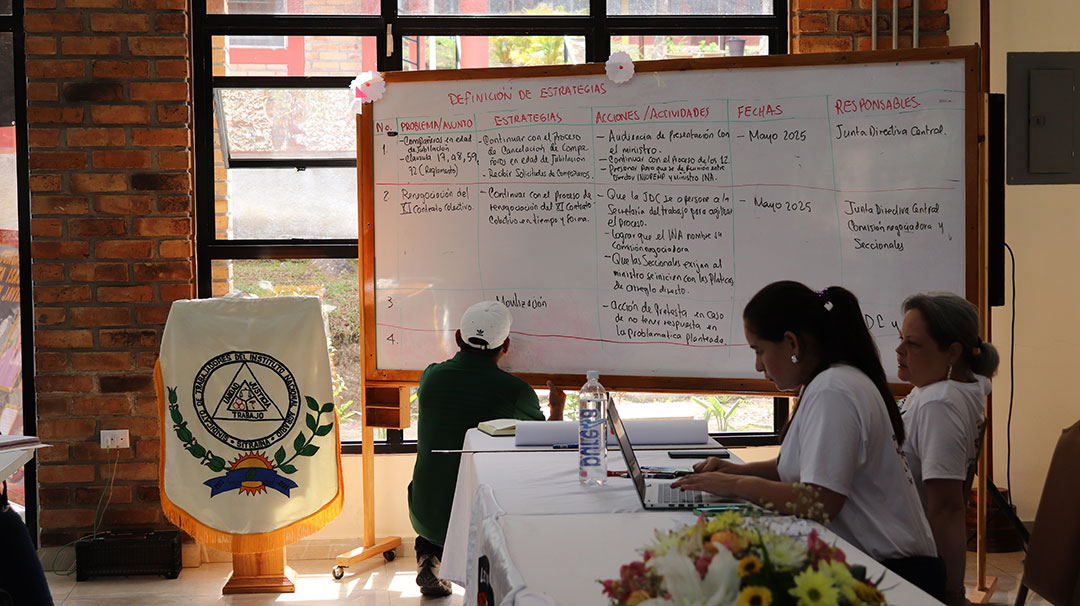 DEFINICIÓN DE ESTRATEGIAS
No. PROBLEMA/ASUNTO ESTRATEGIAS ACCIONES/ACTIVIDADES FECHAS RESPONSABLES
1.
- Compañeros en edad
de Jubilación
- Clausula 17, 48, 59,
72 (Reglamento)
- Continuar con el Proceso
de Cancelación de Compa
ñeros en edad de Jubilación
- Recibir Solicitudes de Compañeros.
- Audiencia de Presentación con
el ministro.
- Continuar con el proceso de los 12
Director INJUPEMP y ministro INA.
- Mayo 2025
Junta Directiva Central.
2.
Renegociación del
XI Contrato Colectivo.
- Continuar con el Proceso de
renegociación del XI Contrato
Colectivo en tiempo y forma.
- Que la JDC se apersone a la
Secretaria del trabajo para agilizar
el Proceso.
- Lograr que el INA nombre la
Comisión negociadora
- Que las Seccionales exijan al
ministro se inicien con las Platicas
de arreglo directo.
- Mayo 2025
Junta Directiva Central
Comisión negociadora y
Seccionales
3
Movilización
- Acción de Protesta en caso
de no tener respuesta en
la problematica planteada.
JDC y
4.
DE TRABAJADORES DEL INSTITUTO NACIONAL
UNIDAD
JUSTICIA
TRABAJO
SITRAINA